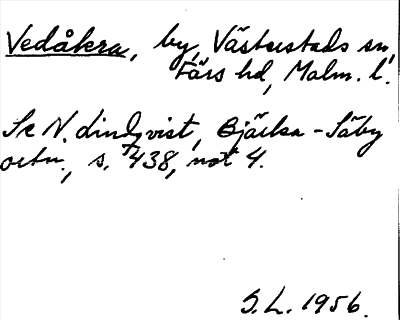 Vedåkra, by, Västerstads sn,
Färs hd, Malm. l.
Se N. Lindqvist, Bjärka-Säby
ortn., s. 438, not 4.
S.L. 1956.